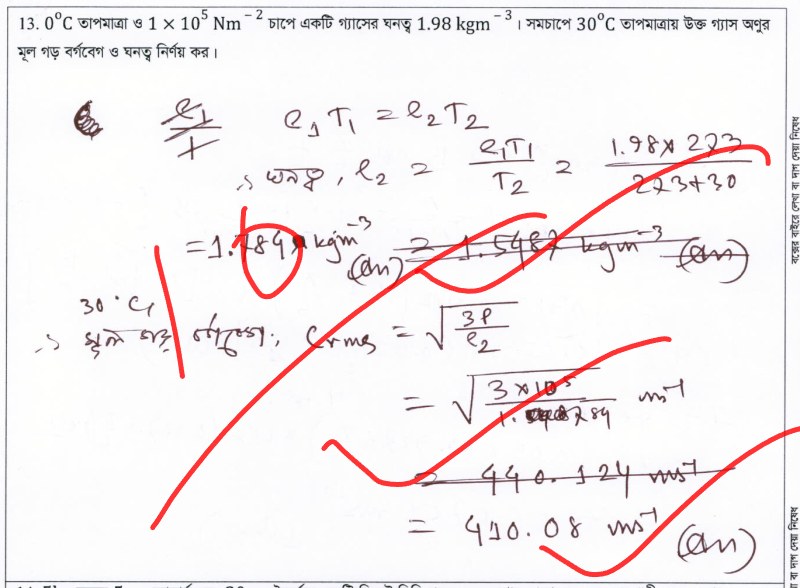 13. 0°C তাপমাত্রা ও 1 × 10⁵ Nm⁻² চাপে একটি গ্যাসের ঘনত্ব 1.98 kgm⁻³। সমচাপে 30°C তাপমাত্রায় উক্ত গ্যাস অণুর
মূল গড় বর্গবেগ ও ঘনত্ব নির্ণয় কর।
ρ₁T₁ = ρ₂T₂
∴ ঘনত্ব, ρ₂ = ρ₁T₁/T₂ = 1.98 × 273/273+30
= 1.784 kgm⁻³ (Ans) = 1.5487 kgm⁻³ (Ans)
30°C
∴ মূল গড় বর্গবেগ, Crms = √(3P/ρ₂)
= √(3 × 10⁵/1.784) ms⁻¹
= 440.124 ms⁻¹
= 410.08 ms⁻¹ (Ans)
বক্সের বাইরে লেখা বা দাগ দেয়া নিষেধ
বা দাগ দেয়া নিষেধ